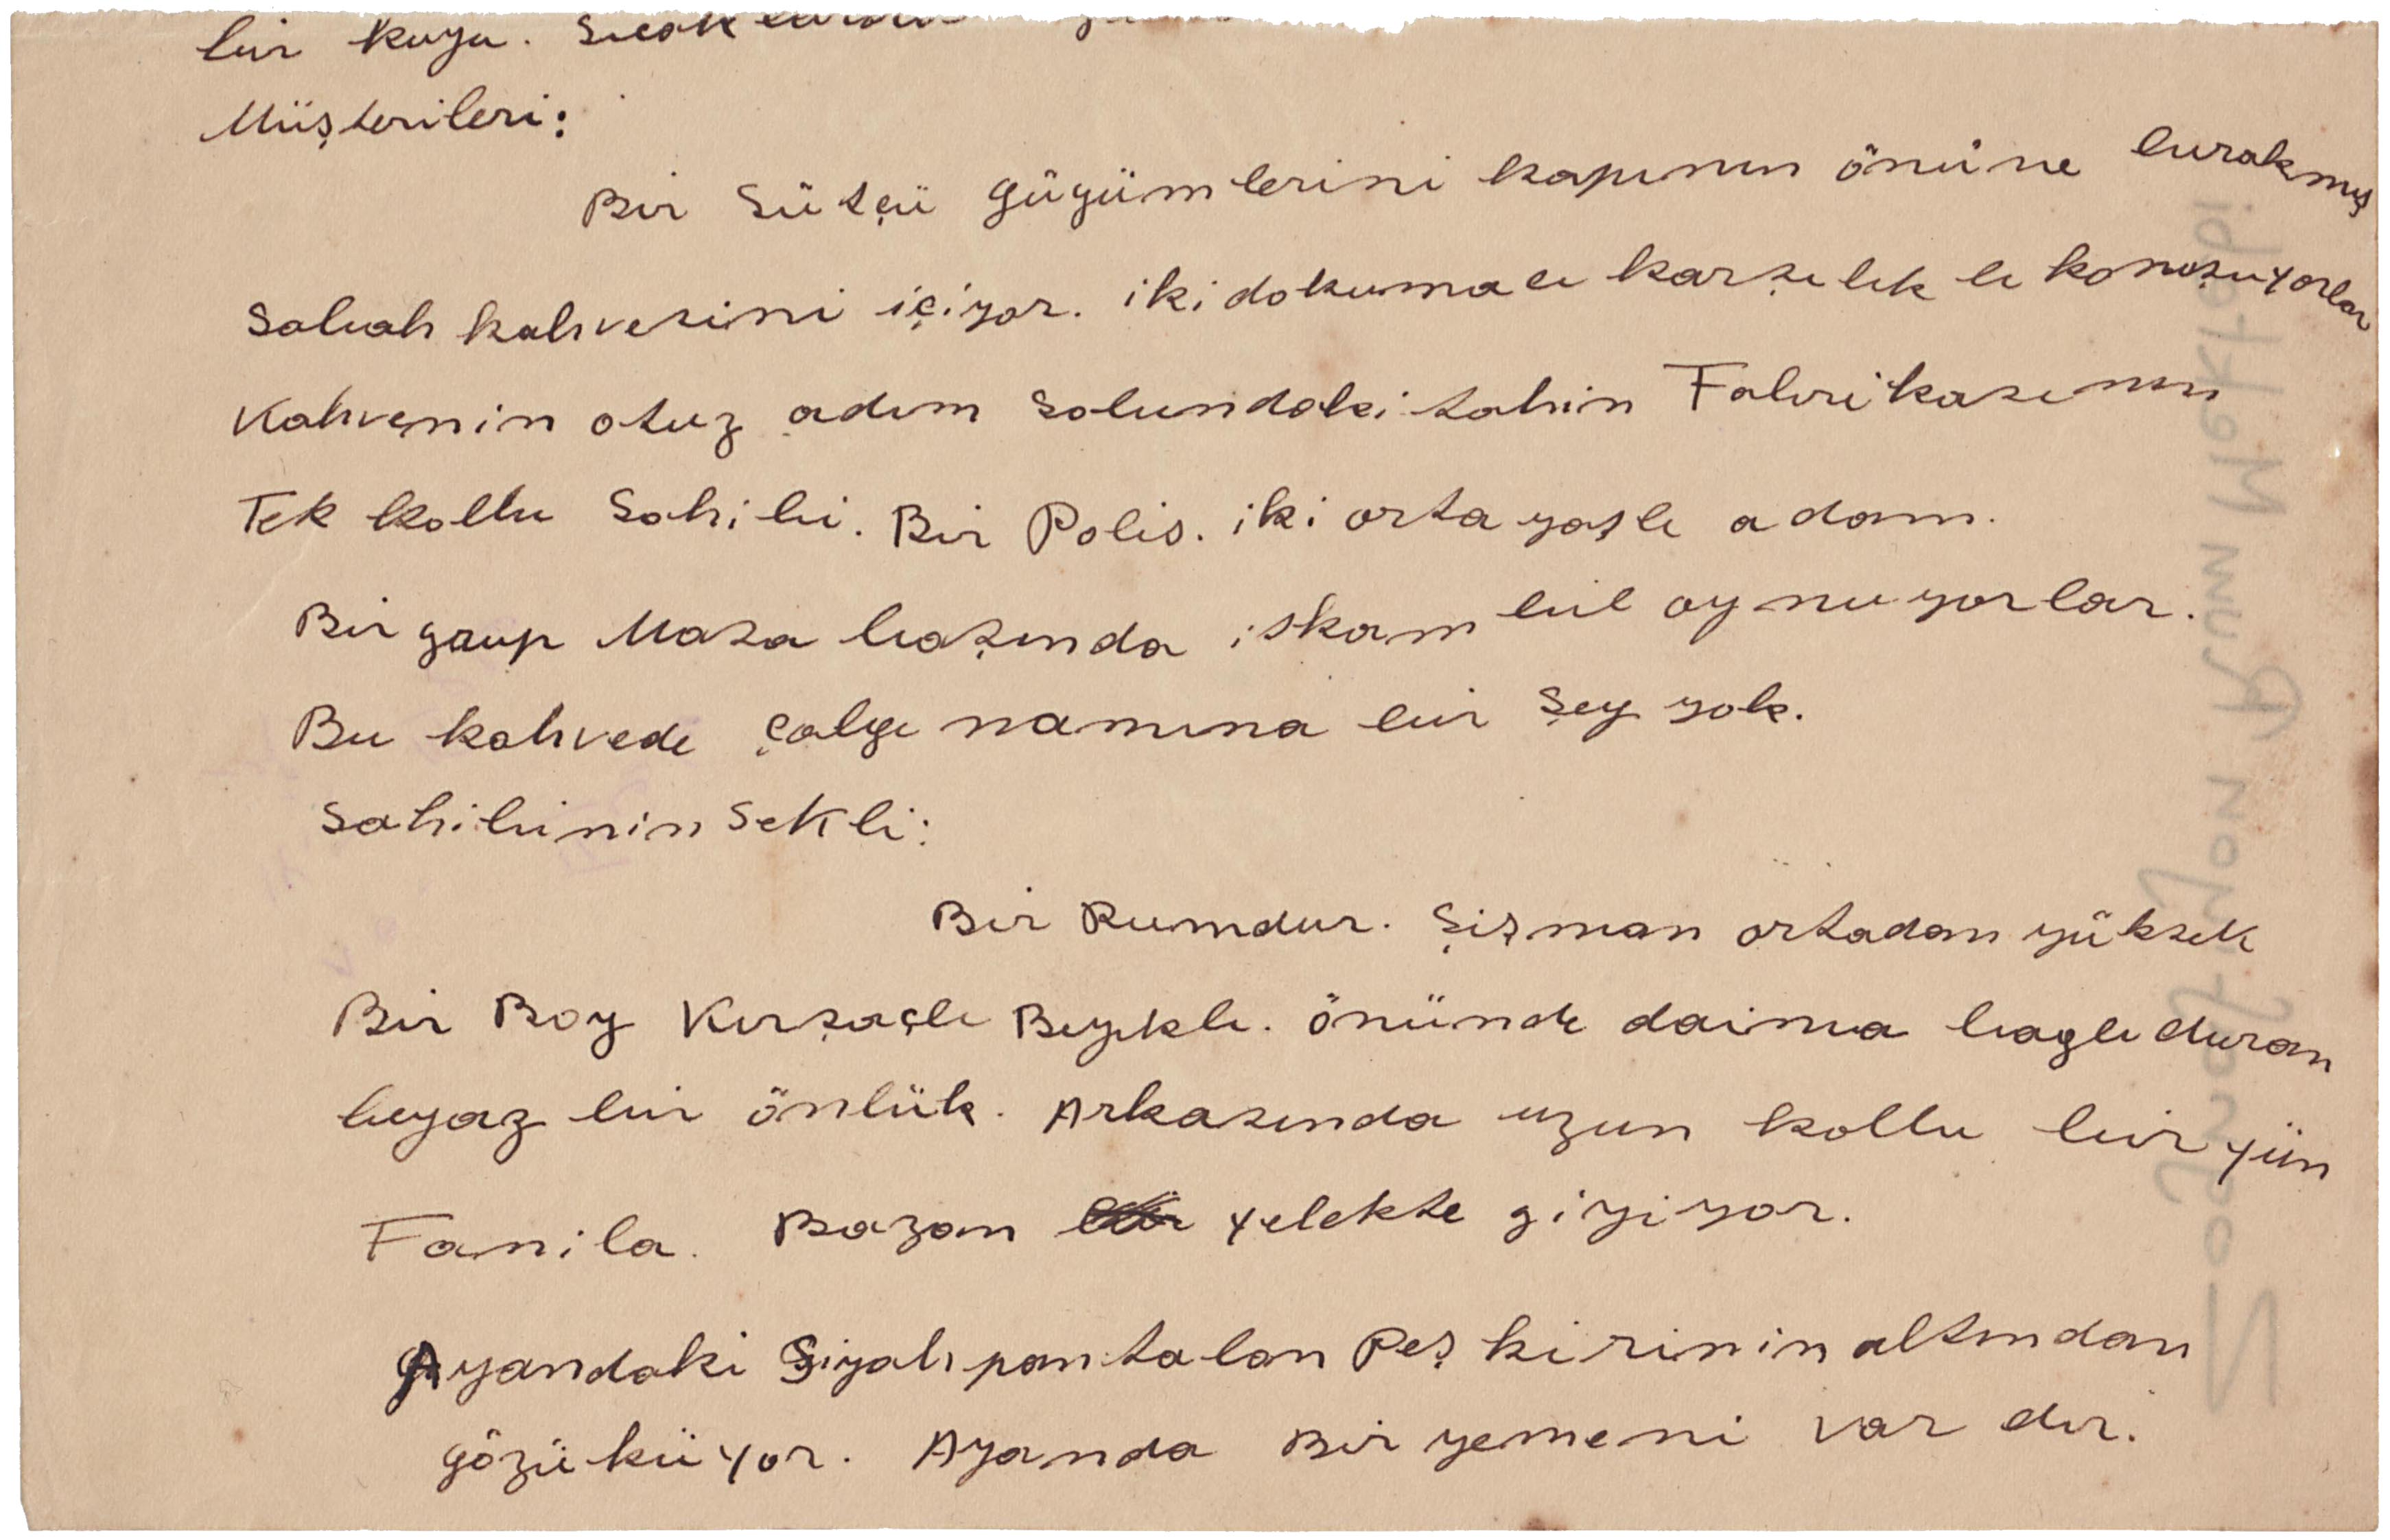 bir kuyu.
Müşterileri:
Bir Sütçü güğümlerini kapının önüne bırakmış
Sabah kahvesini içiyor. iki dokumacı karşılıklı konuşuyorlar
Kahvenin otuz adım solundaki tahin Fabrikasının
Tek kollu Sahibi. Bir Polis. iki orta yaşlı adam.
Bir grup Masa başında iskambil oynuyorlar.
Bu kahvede çalgı namına bir şey yok.
Sahibinin Sekli:
Bir Rumdur. Şişman ortadan yüksek
Bir Boy Kırşaçlı Bıyıklı. önünde daima bağlı duran
beyaz bir önlük. Arkasında uzun kollu bir yün
Fanila. Bazan yelekte giyiyor.
Ayandaki Siyah pantalon Peşkirinin altından
gözüküyor. Ayanda Bir yemeni var dır.
Rum Mektebi